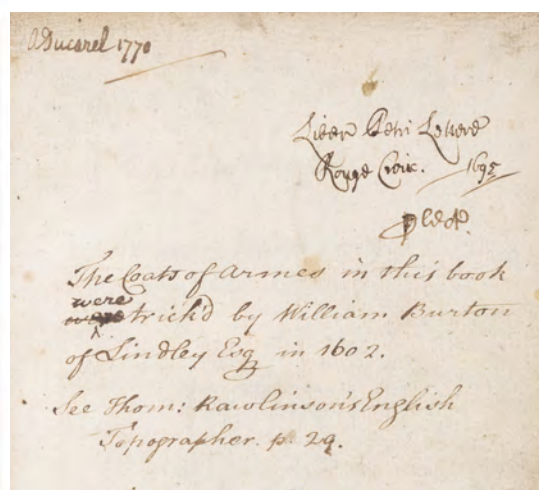 ADucarel 1770
Liber Petri Leneve
Rouge Croix. 1695
The Coats of Armes in this book
were
were trick'd by William Burton
of Lindley Esq in 1602.
See Thom: Rawlinson's English
Topographer. p. 29.